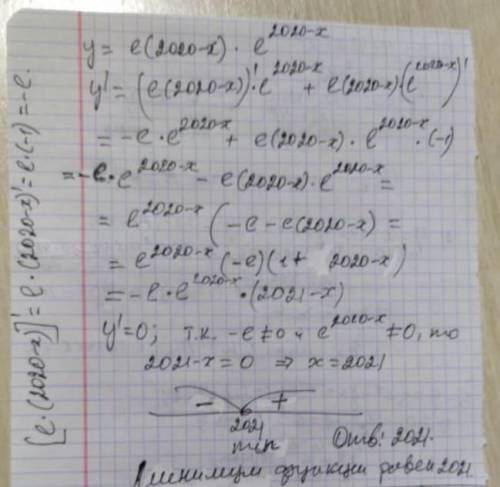 y = e(2020-x) · e^{2020-x}
y' = (e(2020-x))' · e^{2020-x} + e(2020-x) · (e^{2020-x})'
= -e · e^{2020-x} + e(2020-x) · e^{2020-x} · (-1)
= -e · e^{2020-x} - e(2020-x) · e^{2020-x} =
= e^{2020-x} (-e - e(2020-x) =
= e^{2020-x} (-e)(1+ 2020-x)
= -e · e^{2020-x} · (2021-x)
y'=0; т.к. -e ≠ 0 и e^{2020-x} ≠ 0, то
2021-x = 0 ⇒ x = 2021
- +
2021
min Отв: 2021.
Минимум функции равен 2021
[e·(2020-x)]' = e·(2020-x)' = e·(-1) = -e.